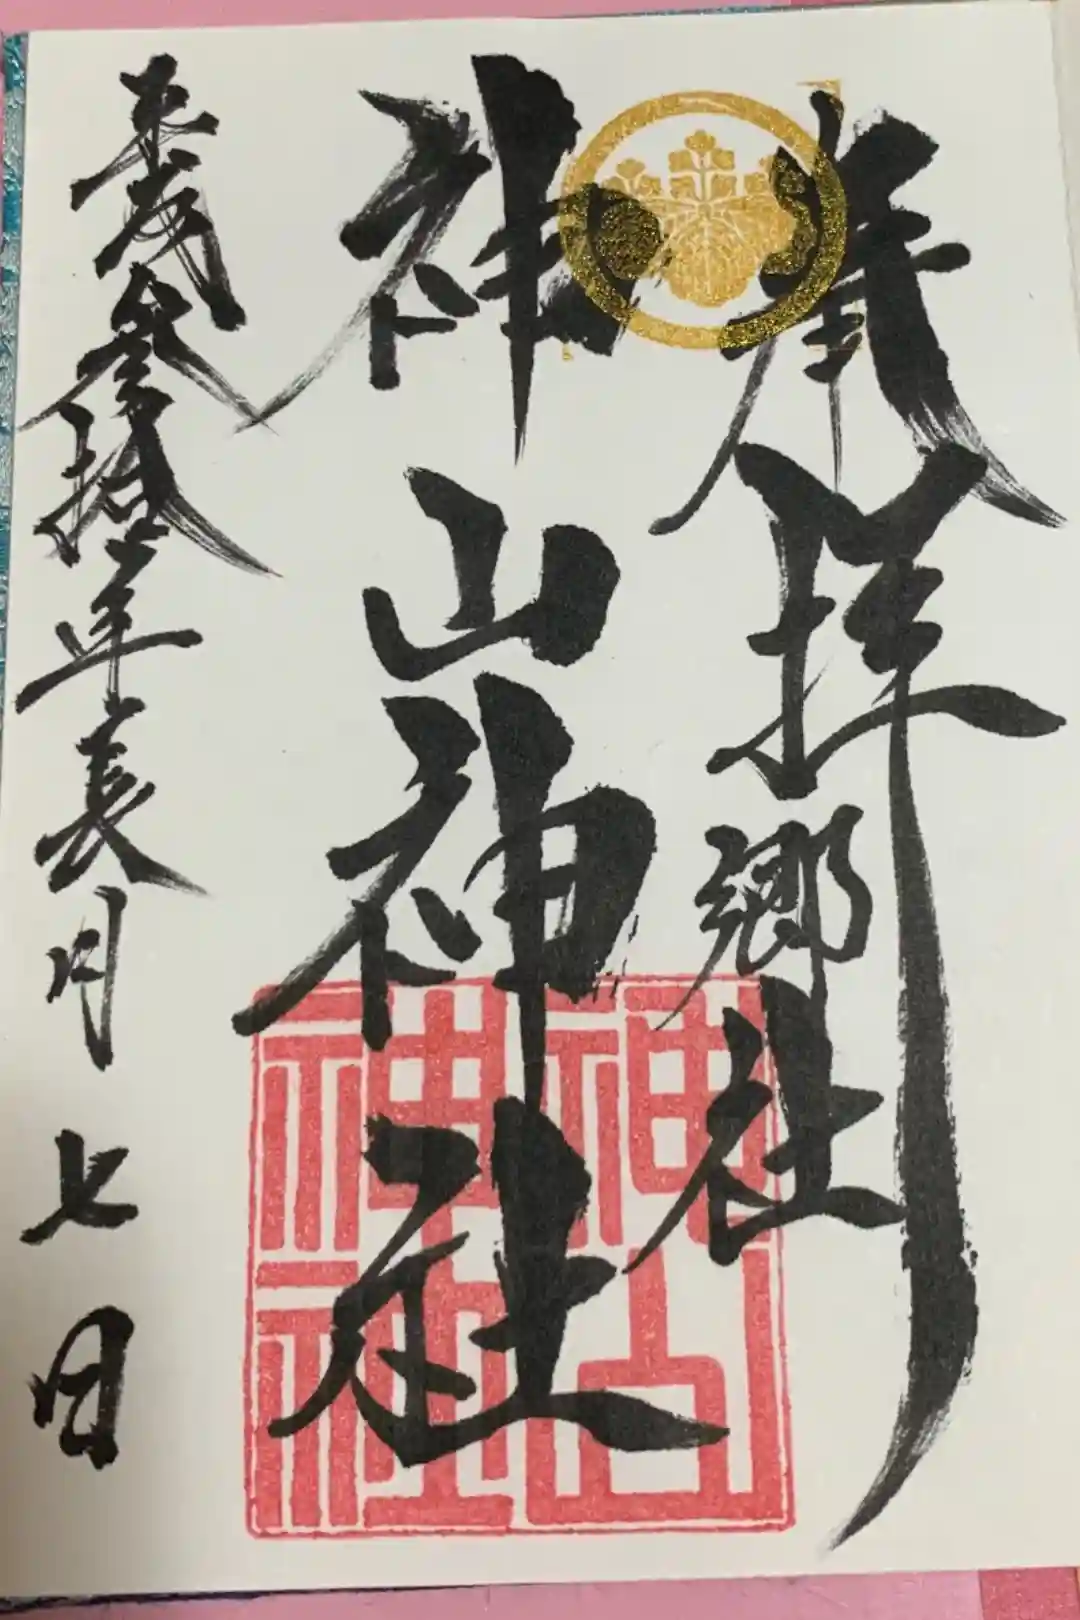 奉拝
郷社
神山神社
平成参拾年長月七日
神山
神社